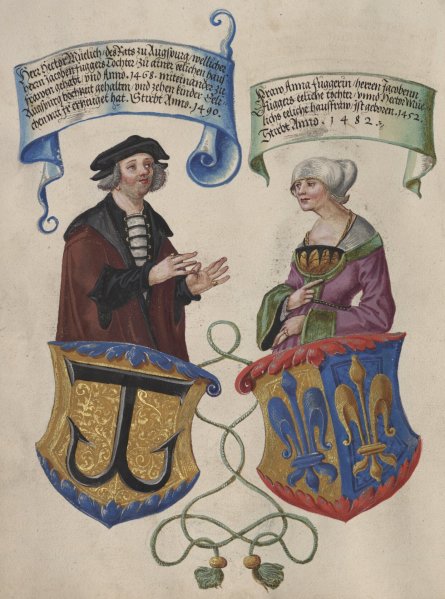 Herr Hector Müelich des Rats zu Augspurg, wellicher
herrn Jacoben Fuggers Tochter zu ainer eelichen haus
frawen gehebt, vnd Anno. 1468. miteinander zu
Augspurg hochzeit gehalten, vnd zehen kinder Eele
chen mit jr erzeuget hat. Stirbt Anno. 1490.
Fraw Anna Fuggerin herren Jacoben
Fuggers eeliche tochter, vnnd Hector Müe
lichs eeliche hausfraw, ist geboren. 1452.
Stirbt Anno. 1482.